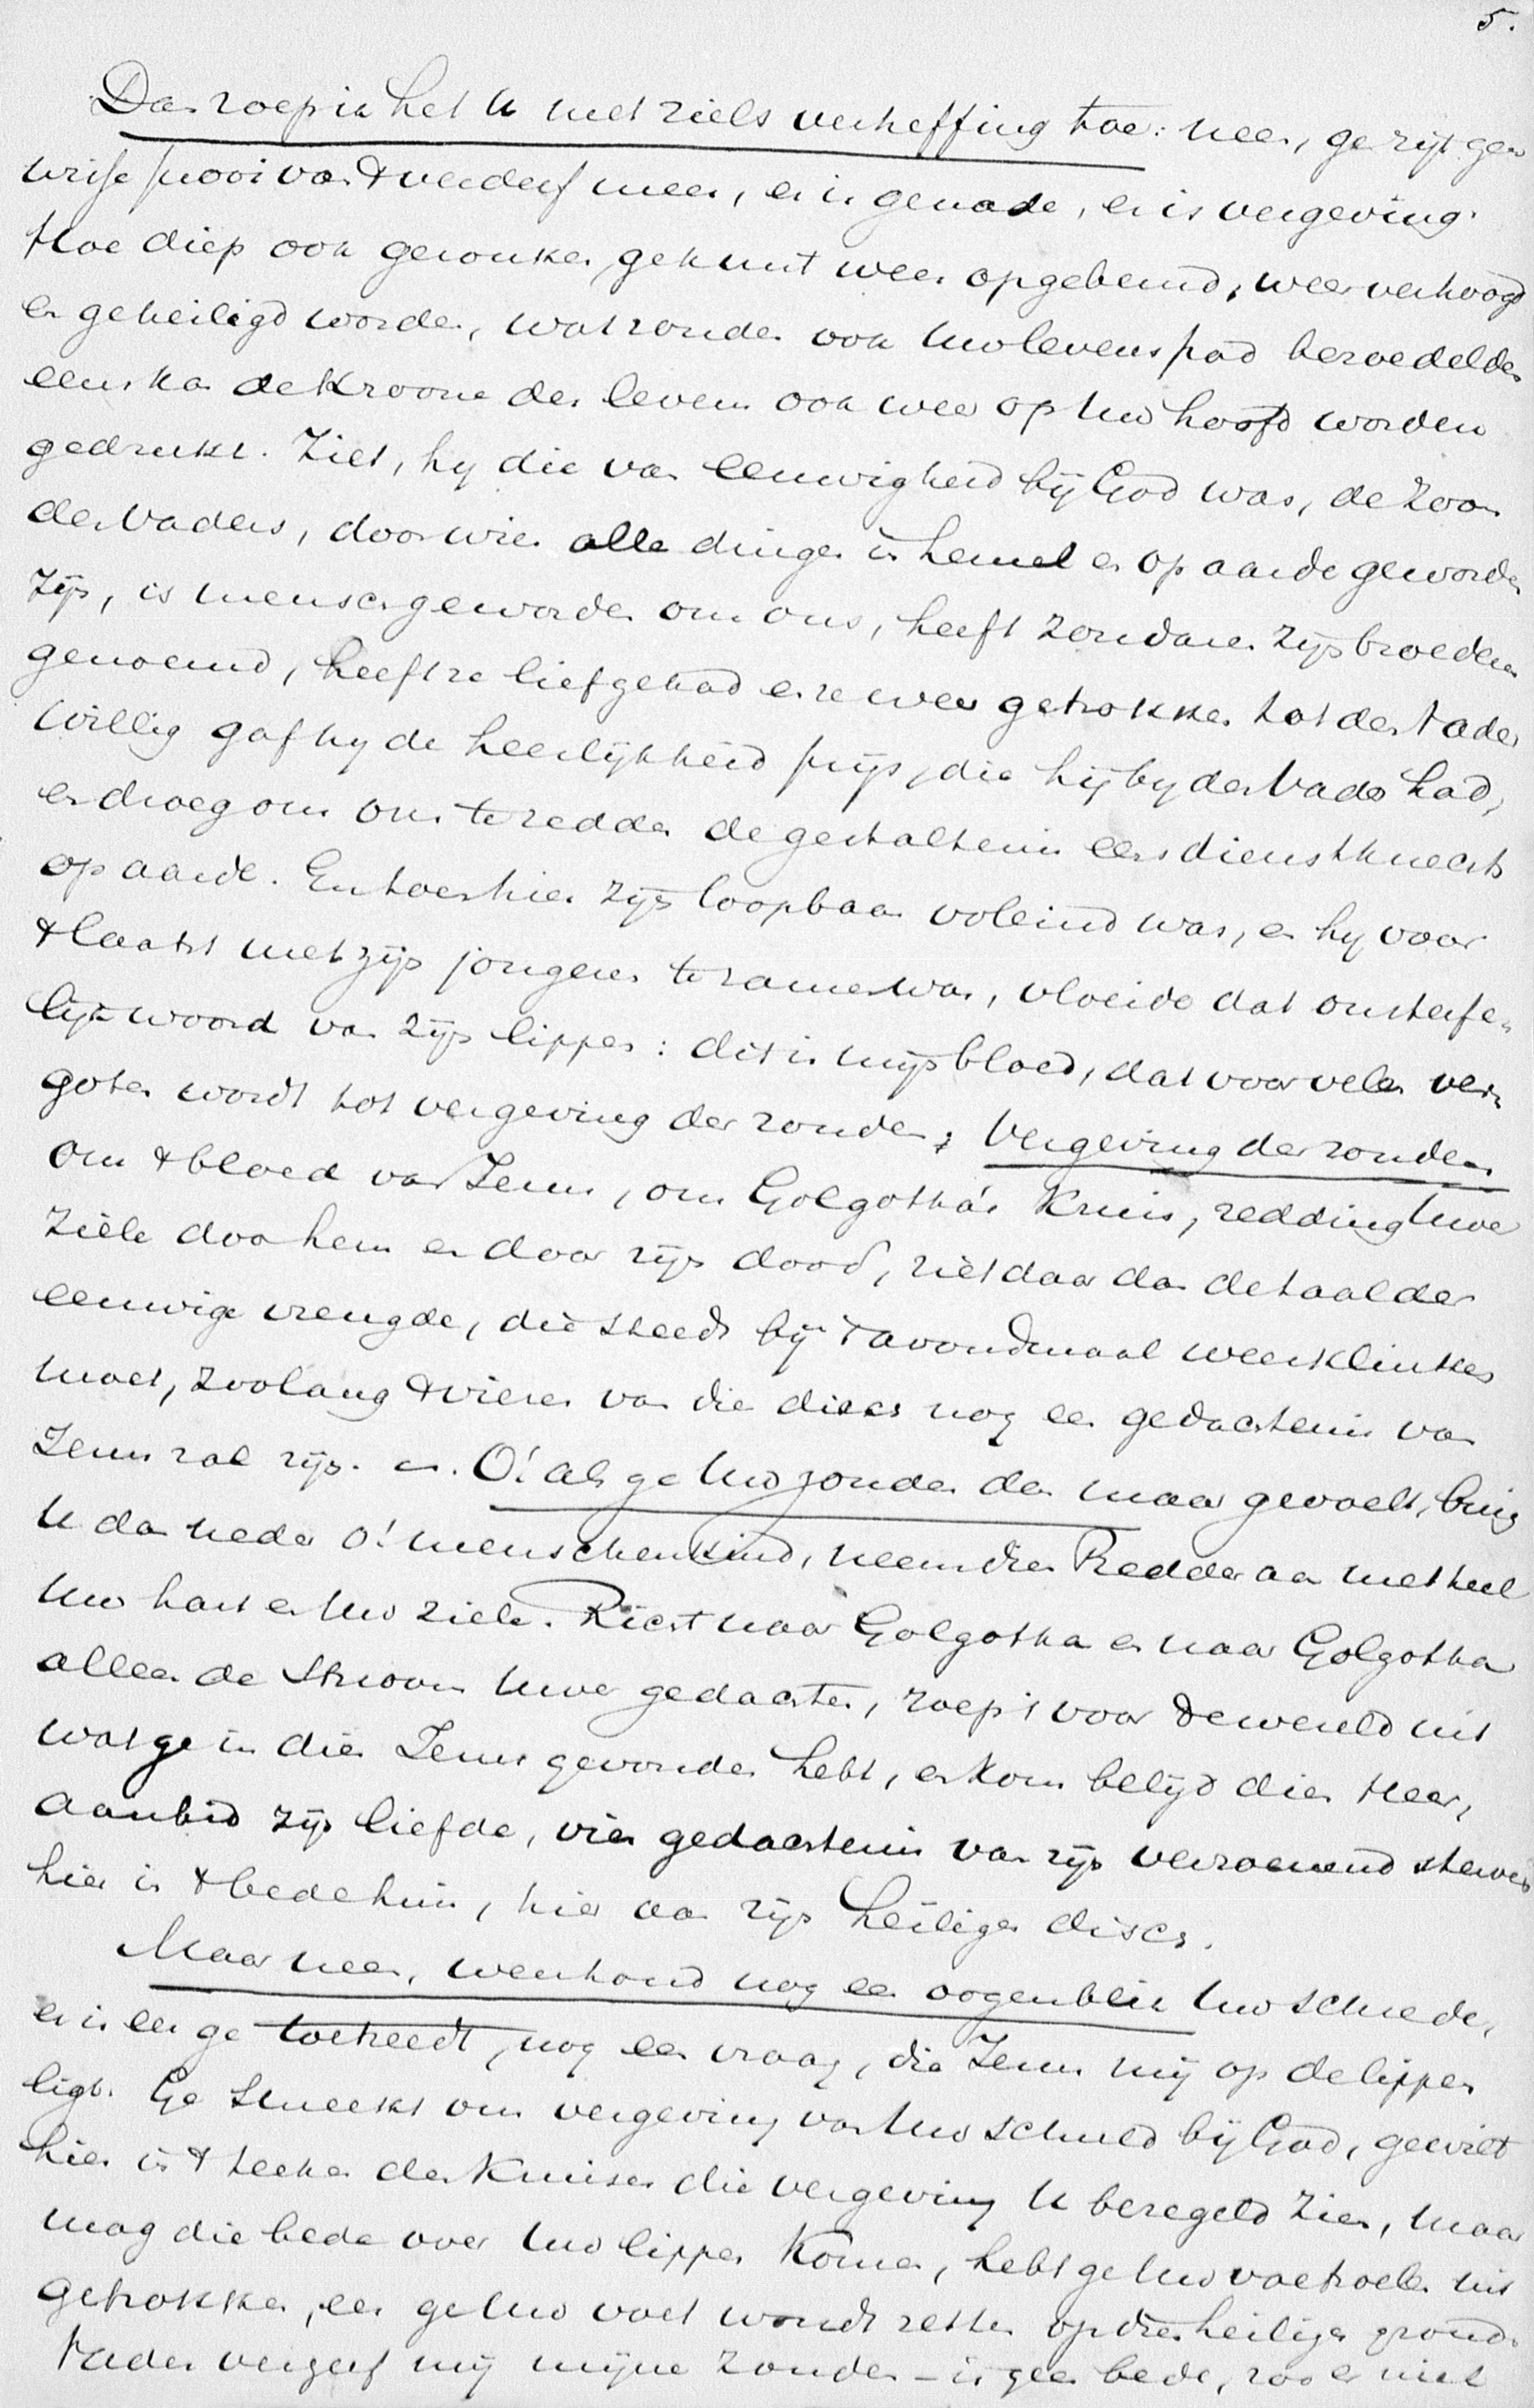 5.
Dan roep ik het U met ziels verheffing toe: neen, ge zijt geen
wisse prooi van 't verderf meer, er is genade, er is vergeving.
Hoe diep ook gezonken, ge kunt weer opgebeurd, weer verhoogd
en geheiligd worden, wat zonden ook Uw levenspad bezoedelden
eens kan de Kroone des levens ook weer op Uw hoofd worden
gedrukt. Ziet, hij die van eeuwigheid bij God was, de Zoon
des Vaders, door wien alle dingen in hemel en op aarde geworden
zijn, is mensch geworden om ons, heeft zondaren zijn broederen
genoemd, heeft ze liefgehad en ze weer getrokken tot den Vader
Willig gaf hij de heerlijkheid prijs, die hij bij den Vader had,
en droeg om ons te redden de gestaltenis eens dienstknechts
op aarde. En toen hier zijn loopbaan voleind was, en hij voor
't laatst met zijn jongeren te zamen was, vloeide dat onsterfe-
lijk woord van zijn lippen: dit is mijn bloed, dat voor velen ver-
goten wordt tot vergeving der zonden; Vergeving der zonden
om 't bloed van Jezus, om Golgotha's Kruis, redding Uwer
Ziele door hem en door zijn dood, ziet daar dan de taal der
eeuwige vreugde, die steeds bij 't avondmaal weerklinken
moet, zoolang 't vieren van die disch nog een gedachtenis van
Jezus zal zijn. en. O! als ge Uw zonden dan maar gevoelt, buig
U dan neder o! menschenkind, neem dien Redder aan met heel
Uw hart en Uw ziele. Richt naar Golgotha en naar Golgotha
alleen de stroom Uwer gedachten, roep 't voor de wereld uit
wat ge in dien Jezus gevonden hebt, en kom belijd dien Heer,
aanbid zijn liefde, vier gedachtenis van zijn verzoenend sterven
hier in 't bedehuis, hier aan zijn heiligen disch.
Maar neen, weerhoud nog een oogenblik Uw schrede,
er is eer ge toetreedt, nog een vraag, die Jezus mij op de lippen
ligt. Ge smeekt om vergeving van Uw schuld bij God, ge wilt
hier in 't teeken des Kruises die vergeving U bezegeld zien, maar
mag die bede over Uw lippen komen, hebt ge Uw voetzoelen uit
getrokken, eer ge Uw voet wondt zetten op dien heiligen grond.
Vader vergeef mij mijne zonden – is geen bede, zoo er niet